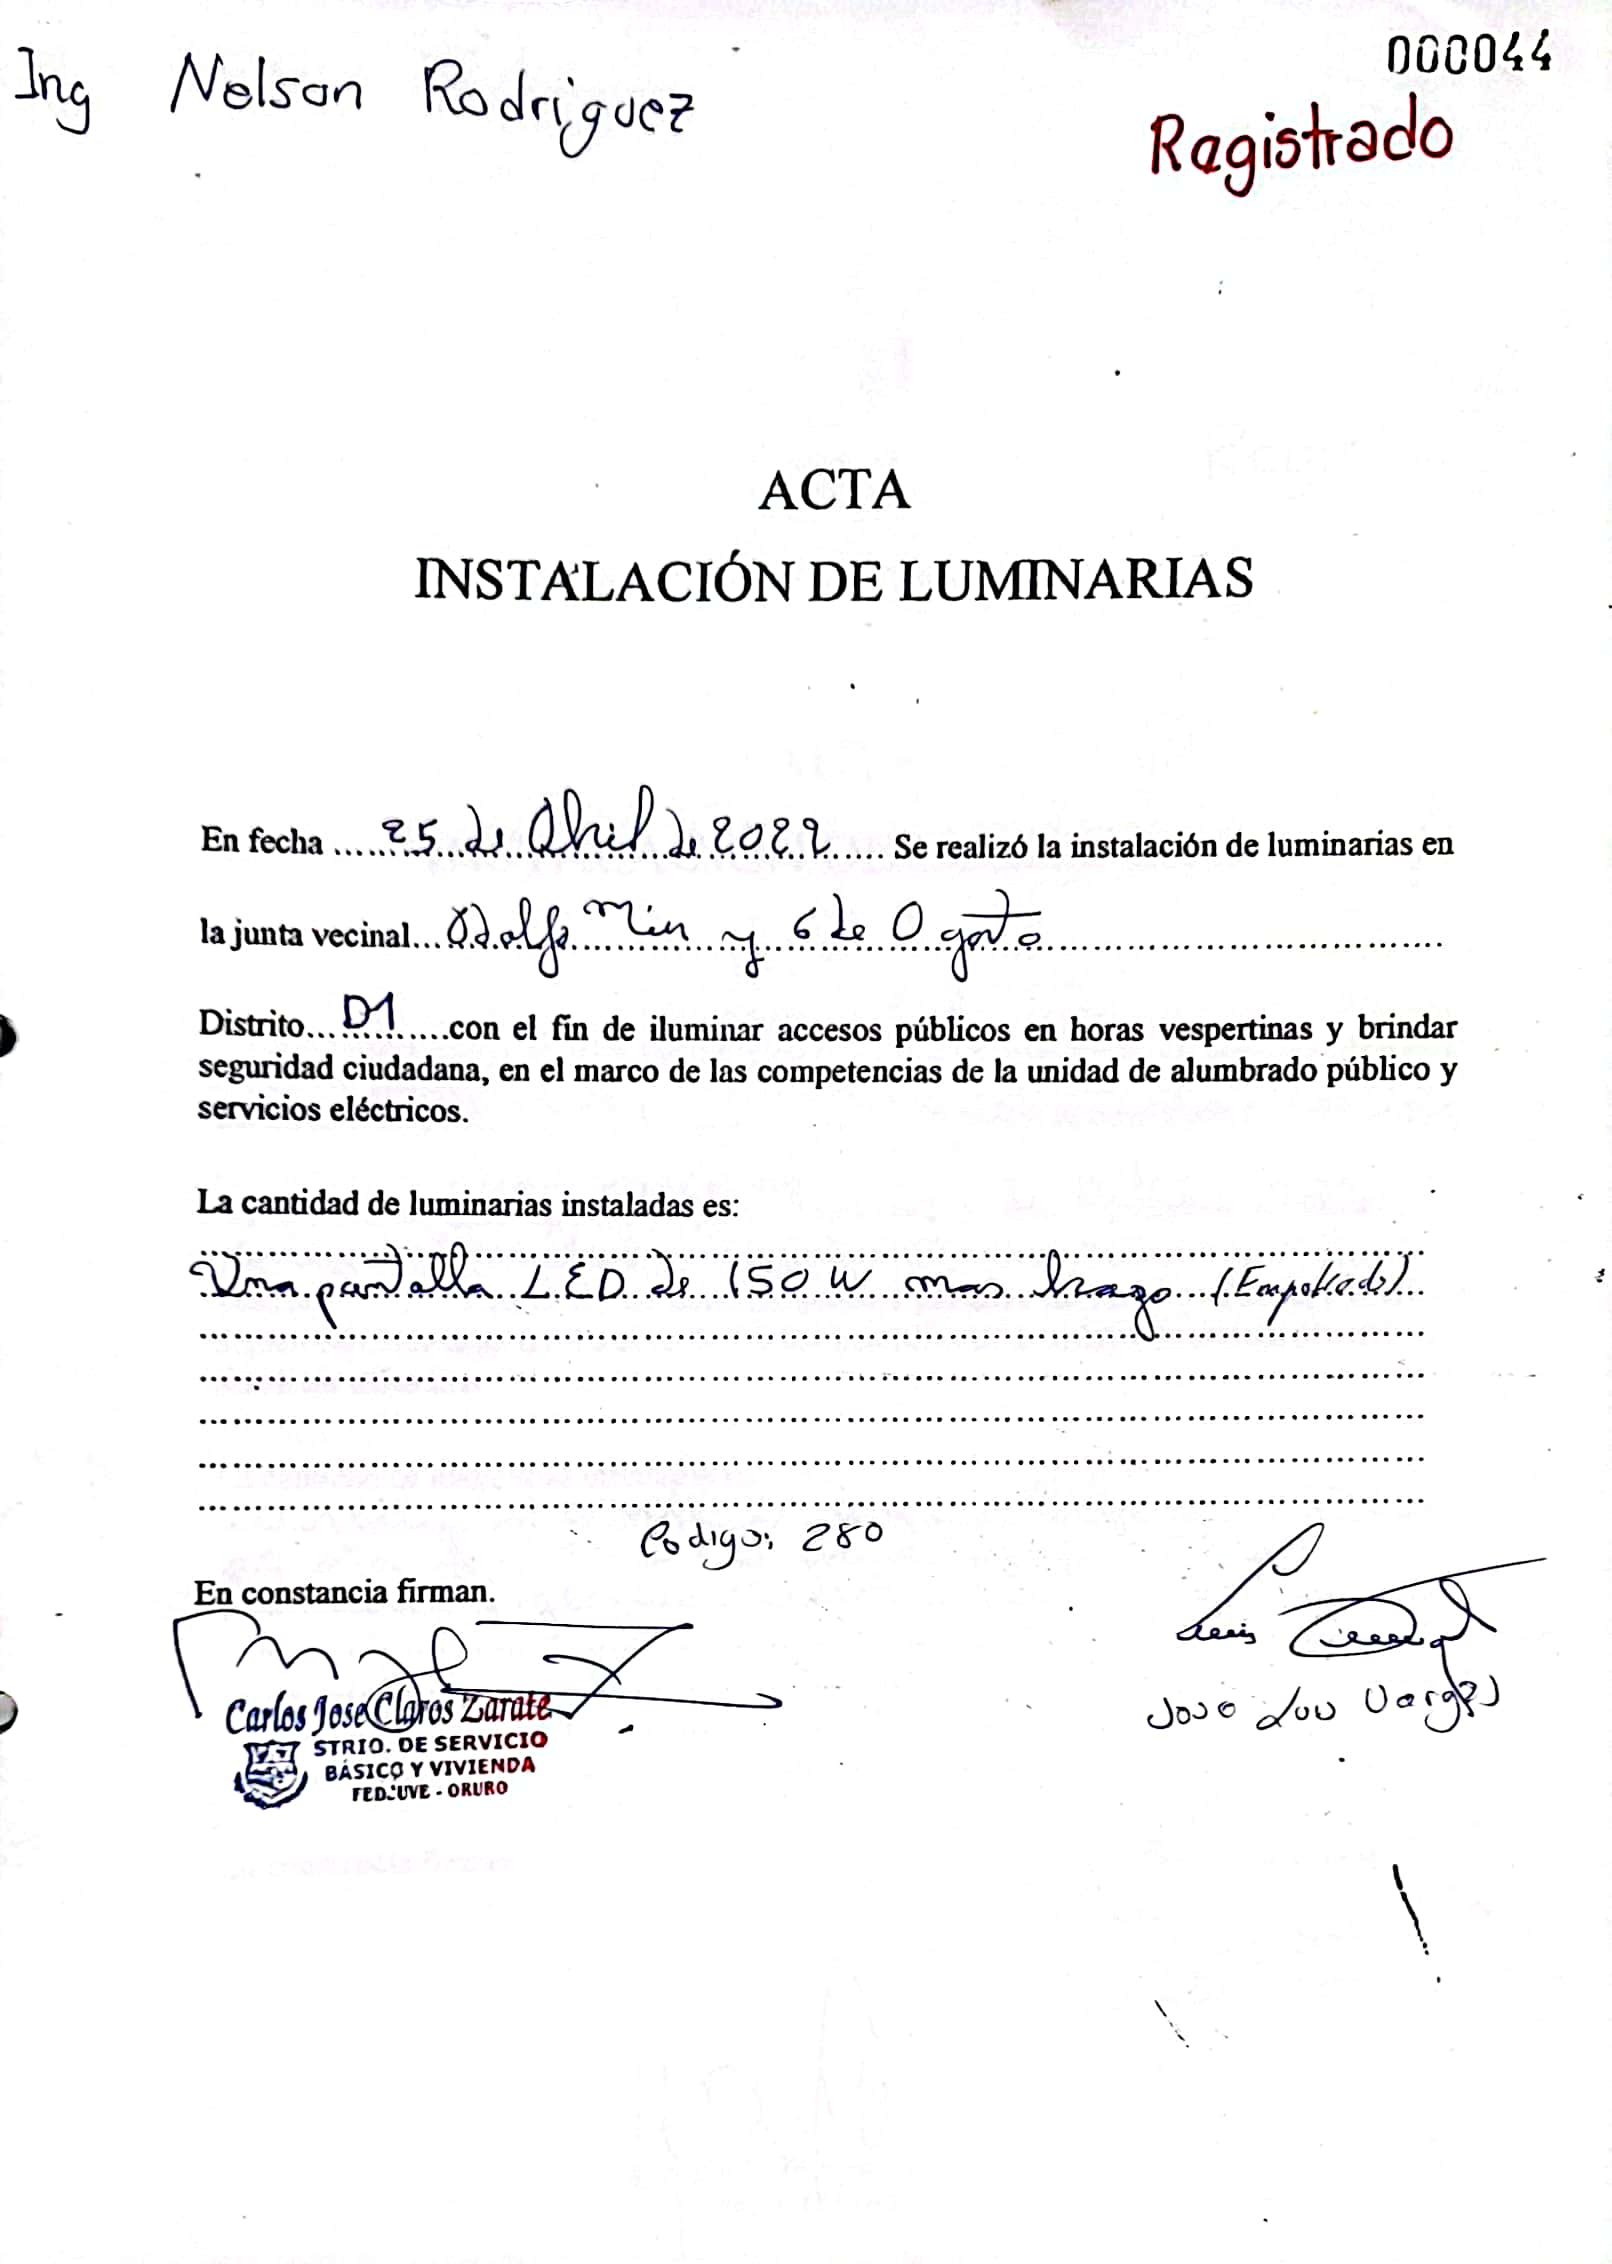 Ing Nelson Rodriguez
000044
Ragistrado
ACTA
INSTALACIÓN DE LUMINARIAS
En fecha ......25 de Abril de 2022...... Se realizó la instalación de luminarias en
la junta vecinal...Adolfo Mier y 6 de Agosto..............................
Distrito...D1......con el fin de iluminar accesos públicos en horas vespertinas y brindar
seguridad ciudadana, en el marco de las competencias de la unidad de alumbrado público y
servicios eléctricos.
La cantidad de luminarias instaladas es:
Una pantalla LED de 150 W mas brazo (Empotrado)
Codigo: 280
En constancia firman.
Carlos Jose Claros Zarate
STRIO. DE SERVICIO
BÁSICO Y VIVIENDA
FEDJUVE - ORURO
Jose Luis Vargas